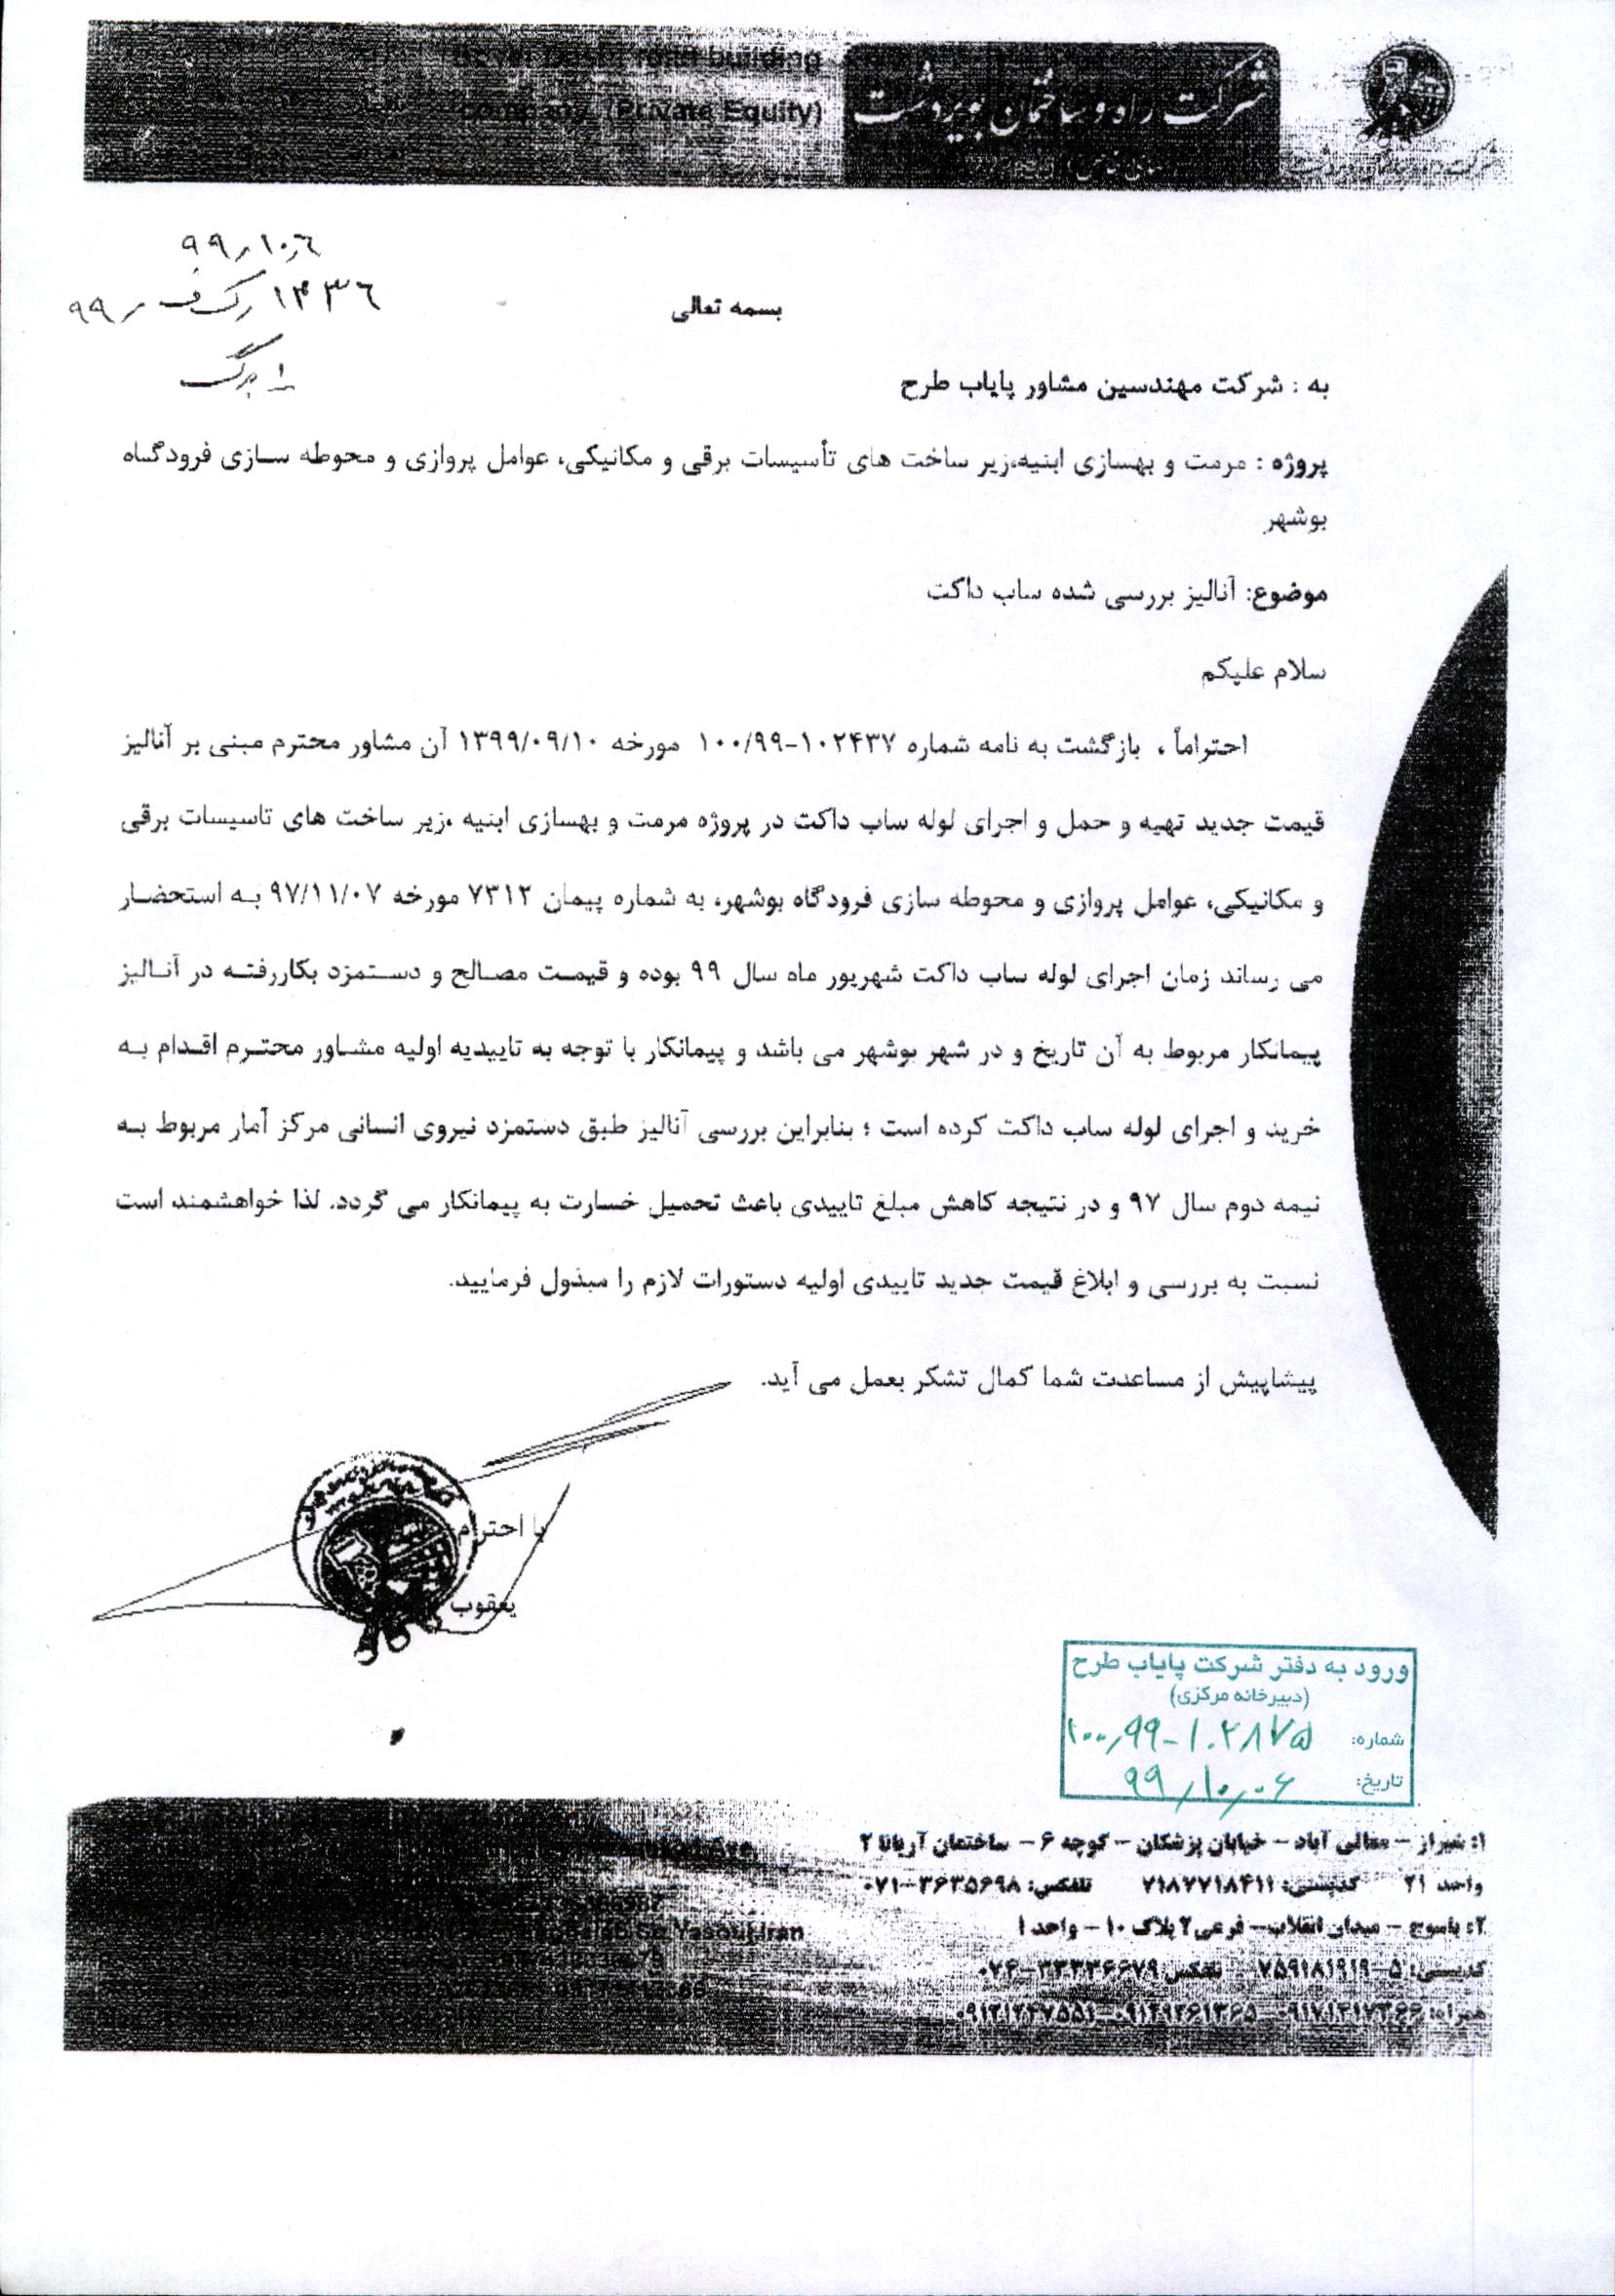 road building
company (Private Equity)
شرکت راه و ساختمان بویردشت
۹۹/۱۰/۶
۱۴۳۶/ک ف/۹۹
۱ برگ
بسمه تعالی
به : شرکت مهندسین مشاور پایاب طرح
پروژه : مرمت و بهسازی ابنیه،زیر ساخت های تأسیسات برقی و مکانیکی، عوامل پروازی و محوطه سازی فرودگاه
بوشهر
موضوع: آنالیز بررسی شده ساب داکت
سلام علیکم
احتراماً ، بازگشت به نامه شماره ۱۰۲۴۳۷-۱۰۰/۹۹ مورخه ۱۳۹۹/۰۹/۱۰ آن مشاور محترم مبنی بر آنالیز
قیمت جدید تهیه و حمل و اجرای لوله ساب داکت در پروژه مرمت و بهسازی ابنیه ،زیر ساخت های تاسیسات برقی
و مکانیکی، عوامل پروازی و محوطه سازی فرودگاه بوشهر، به شماره پیمان ۷۳۱۲ مورخه ۹۷/۱۱/۰۷ به استحضار
می رساند زمان اجرای لوله ساب داکت شهریور ماه سال ۹۹ بوده و قیمت مصالح و دستمزد بکاررفته در آنالیز
پیمانکار مربوط به آن تاریخ و در شهر بوشهر می باشد و پیمانکار با توجه به تاییدیه اولیه مشاور محترم اقدام به
خرید و اجرای لوله ساب داکت کرده است ؛ بنابراین بررسی آنالیز طبق دستمزد نیروی انسانی مرکز آمار مربوط به
نیمه دوم سال ۹۷ و در نتیجه کاهش مبلغ تاییدی باعث تحمیل خسارت به پیمانکار می گردد. لذا خواهشمند است
نسبت به بررسی و ابلاغ قیمت جدید تاییدی اولیه دستورات لازم را مبذول فرمایید.
پیشاپیش از مساعدت شما کمال تشکر بعمل می آید.
با احترام
یعقوب
ورود به دفتر شرکت پایاب طرح
(دبیرخانه مرکزی)
شماره: ۱۰۰/۹۹-۱۰۲۸۷۵
تاریخ: ۹۹/۱۰/۰۶
۱: شیراز – معالی آباد – خیابان پزشکان – کوچه ۶ – ساختمان آریانا ۲
واحد ۲۱ کدپستی: ۷۱۸۷۷۱۸۴۱۱ تلفکس: ۳۶۳۵۶۹۸–۰۷۱
۲: یاسوج – میدان انقلاب– فرعی ۲ پلاک ۱۰ – واحد ۱
کدپستی: ۵–۷۵۹۱۸۱۹۱۹ تلفکس: ۳۳۳۳۶۶۷۹–۰۷۴
همراه:
Yasouj-Iran